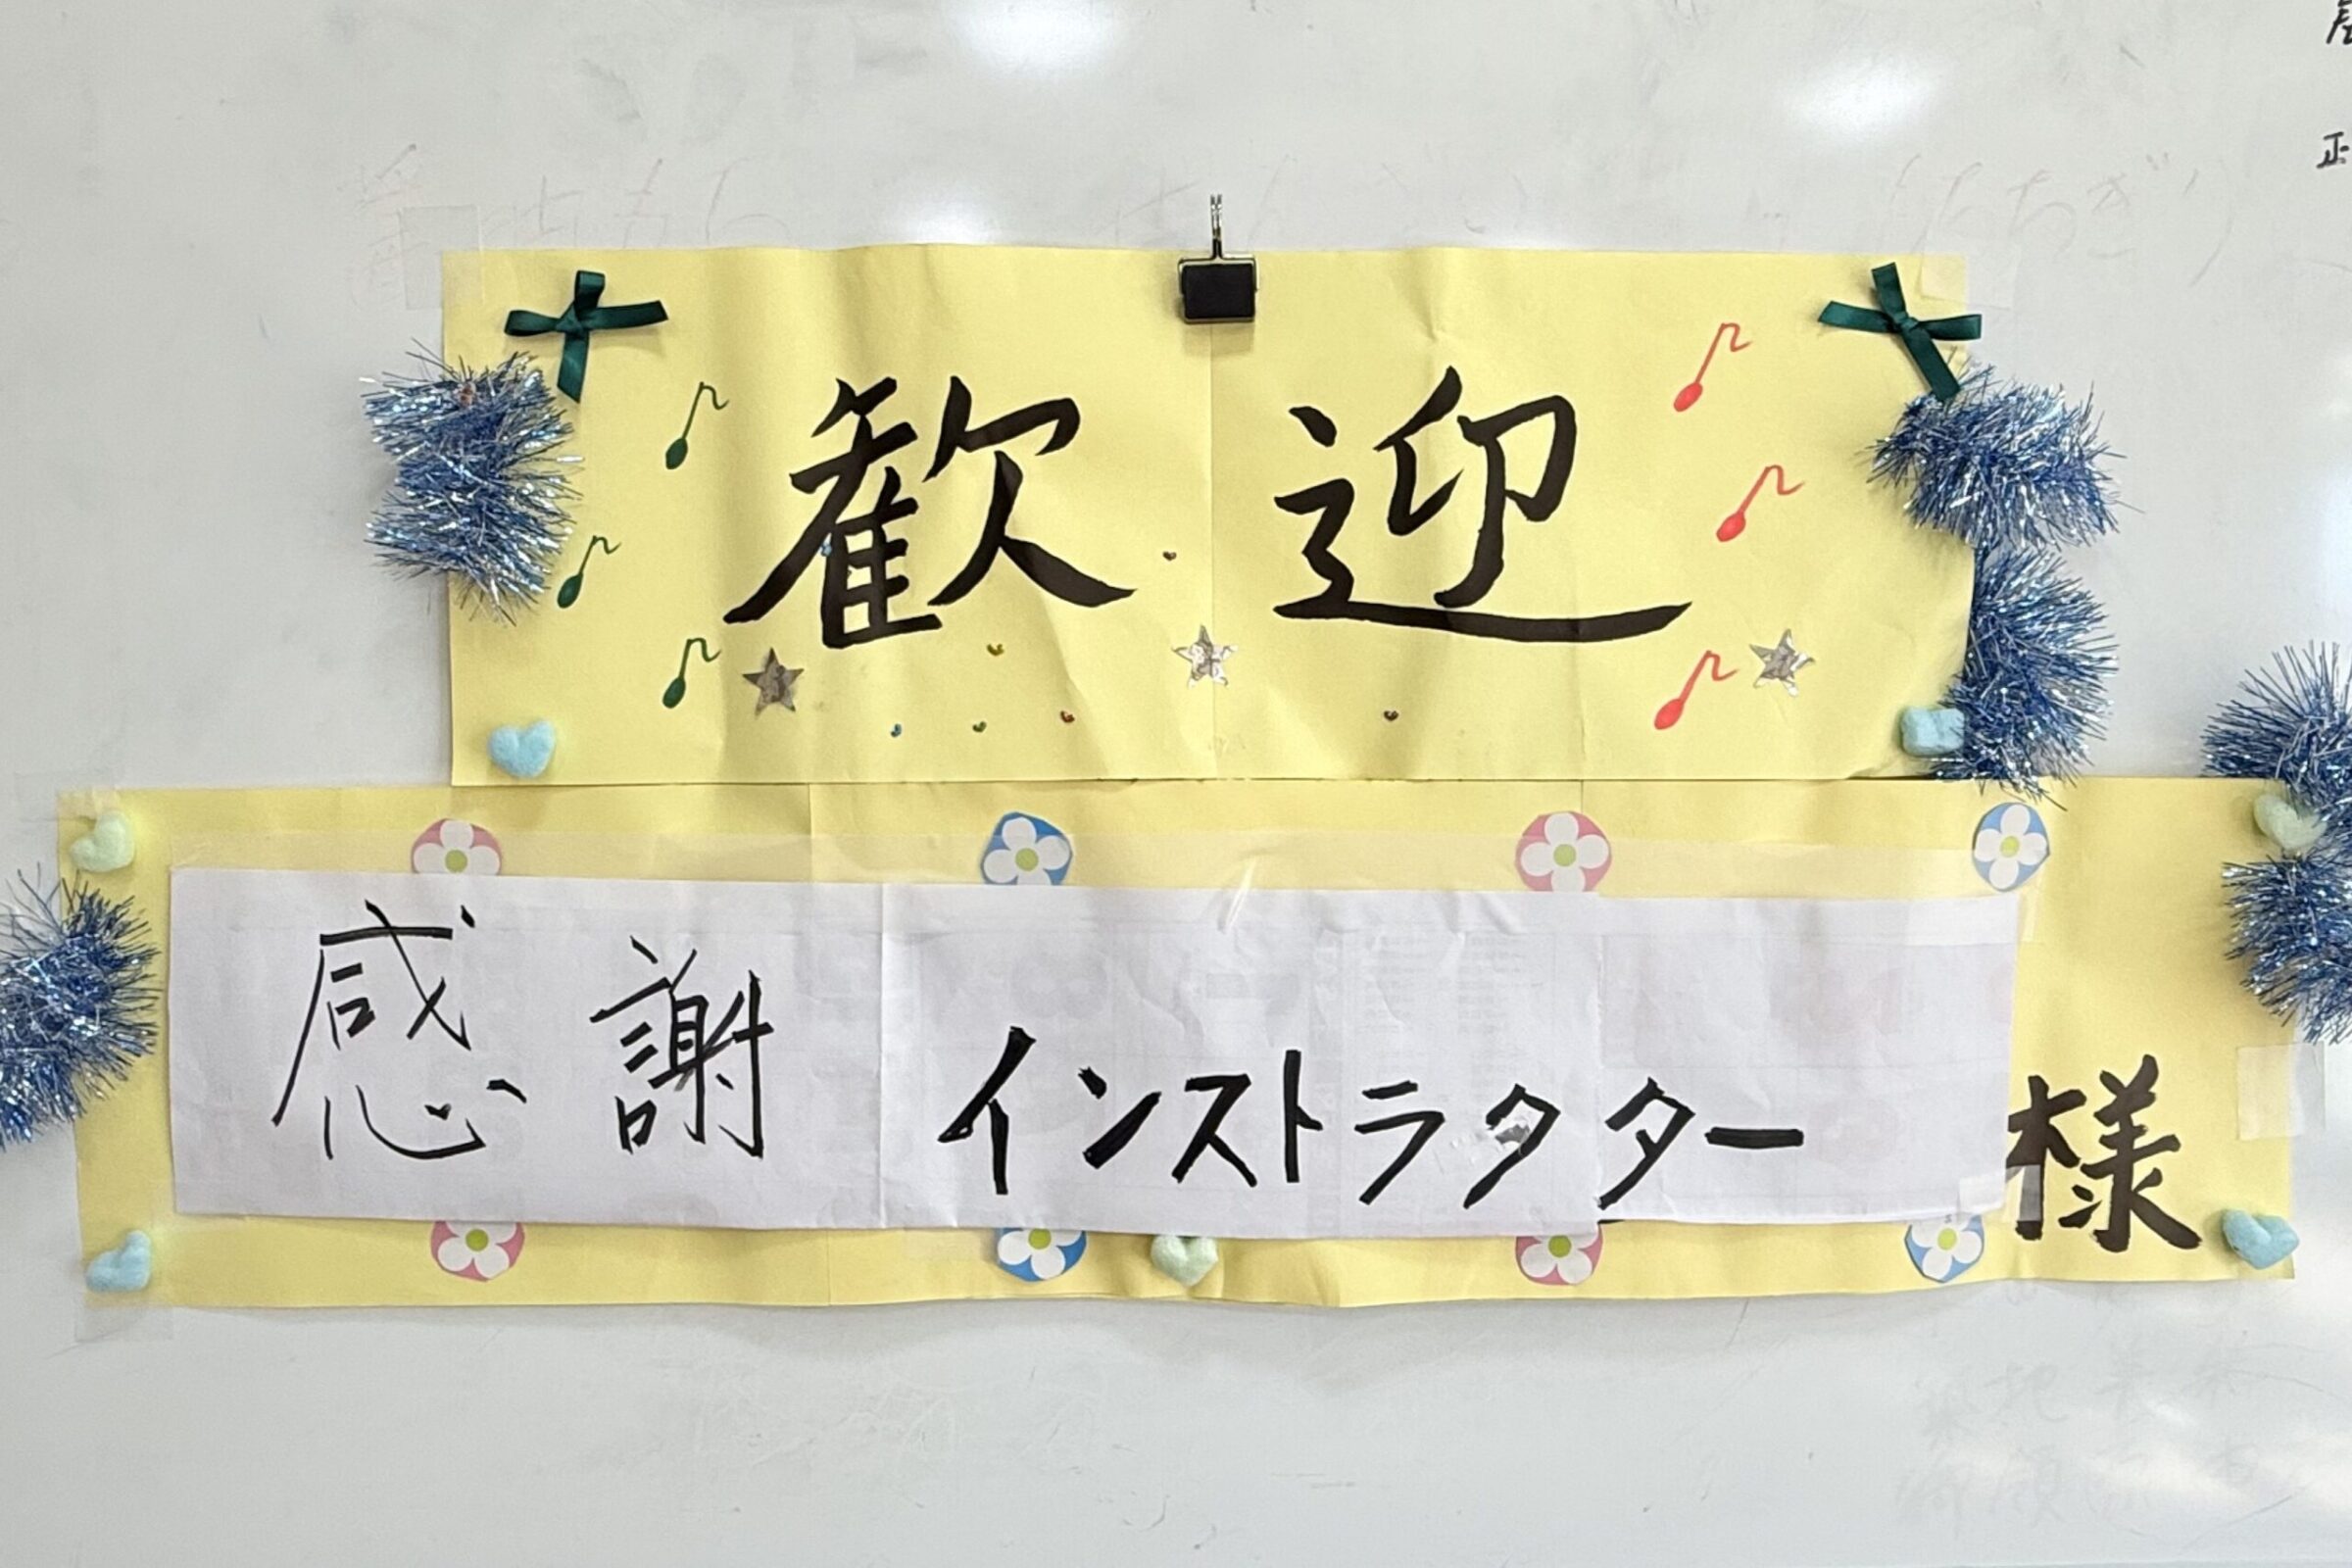 歓迎
感謝 インストラクター 様